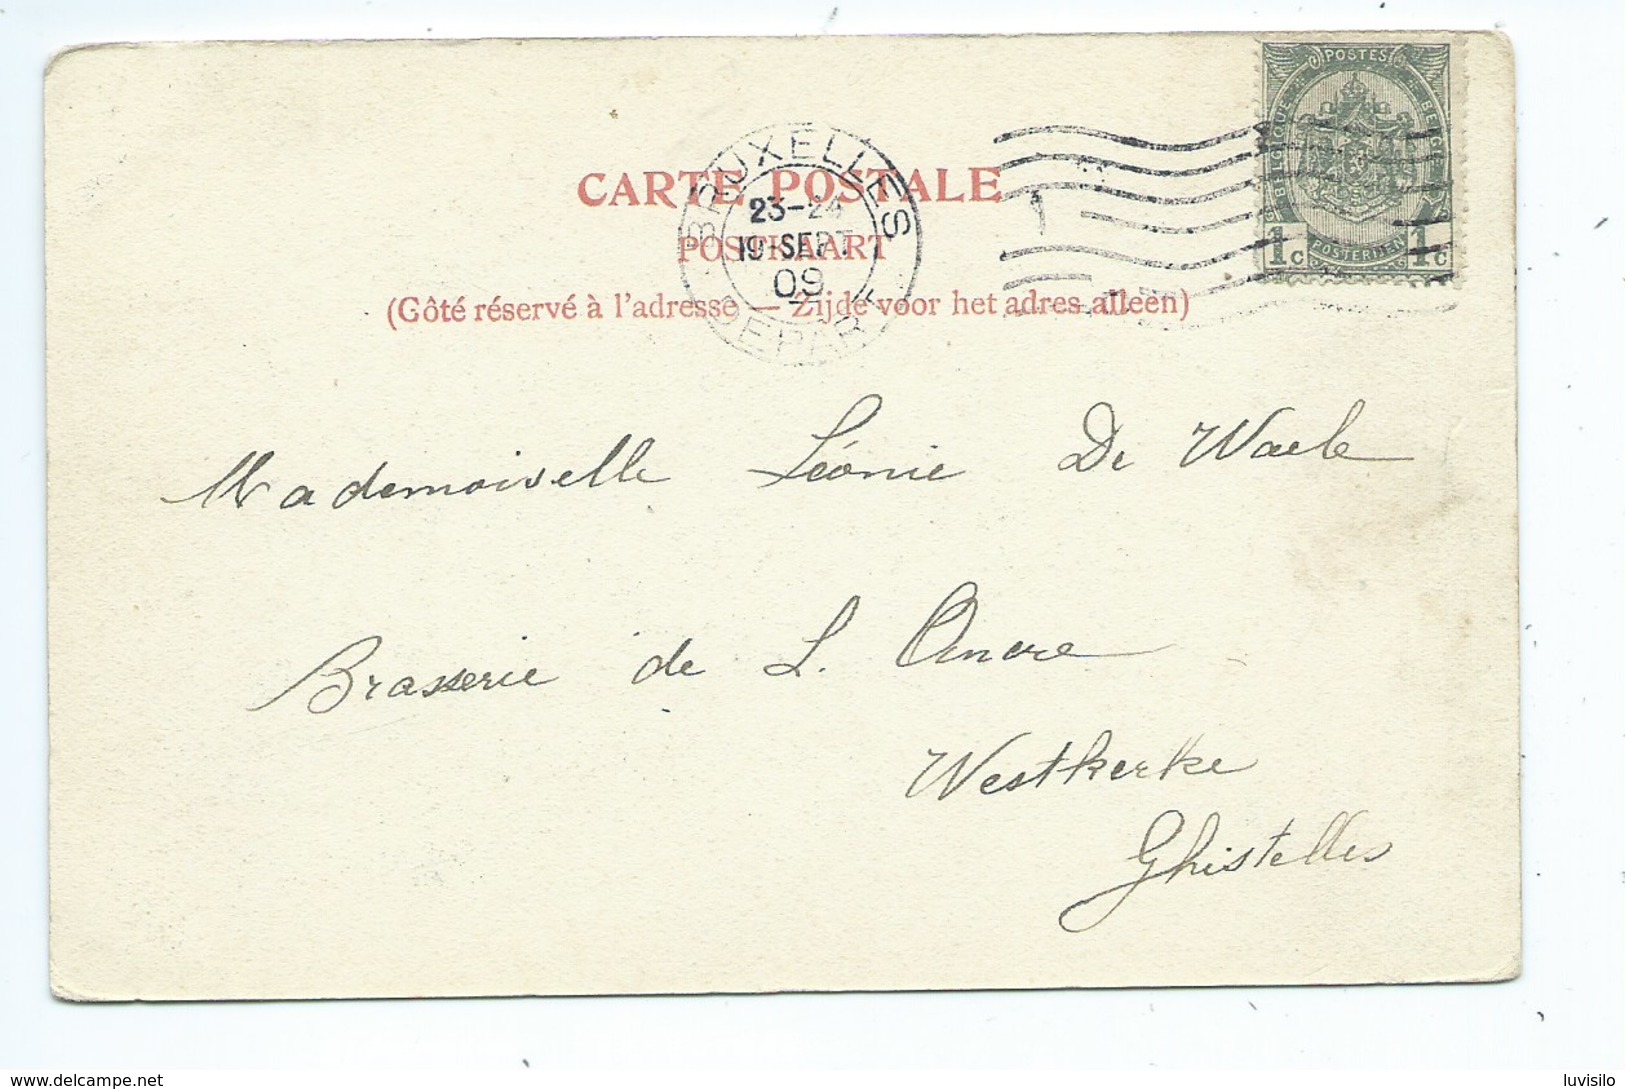 CARTE POSTALE
POSTKAART
(Gôté réservé à l'adresse — Zijde voor het adres alleen)
BRUXELLES
23-24
19 SEPT.
09
DEPART
POSTES
BELGIQUE
BELGIË
POSTERIJEN
1c 1c
Mademoiselle Léonie De Waele
Brasserie de L. Ancre
Westkerke
Ghistelles
www.delcampe.net
luvisilo